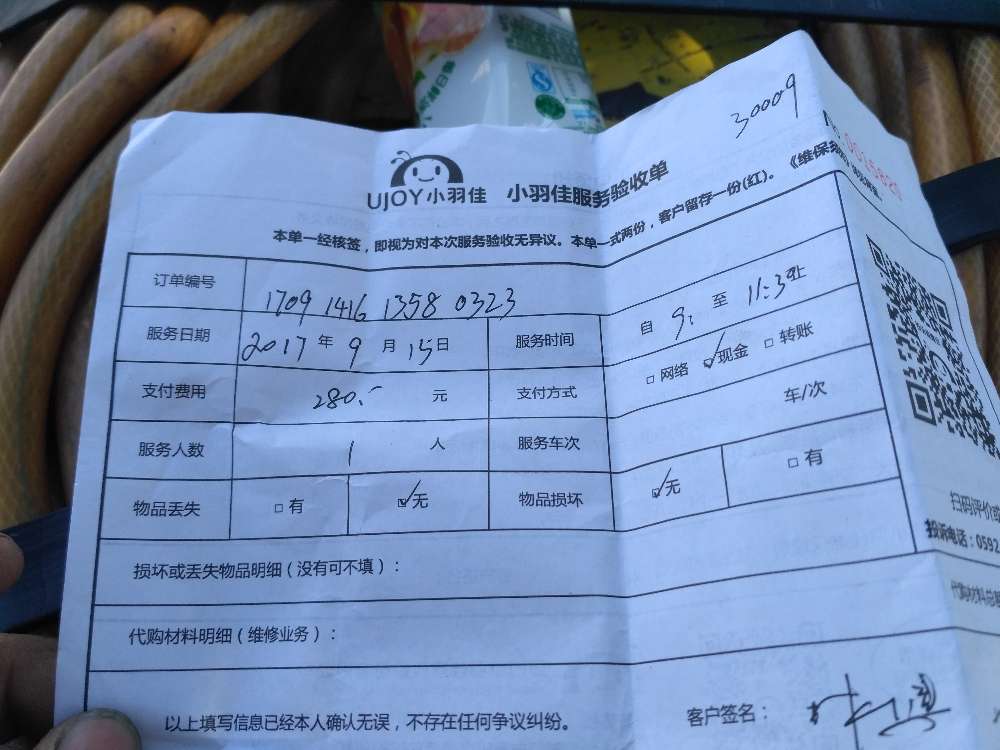 30009
No.0015820
UJOY小羽佳 小羽佳服务验收单
本单一经核签，即视为对本次服务验收无异议。本单一式两份，客户留存一份(红)。《维保务
订单编号 1709 1416 1358 0323
服务日期 2017 年 9 月 15 日 服务时间 自 9: 至 11:30止
支付费用 280.- 元 支付方式 □ 网络 ☑ 现金 □ 转账
服务人数 1 人 服务车次 车/次
物品丢失 □ 有 ☑ 无 物品损坏 ☑ 无 □ 有
损坏或丢失物品明细（没有可不填）：
代购材料明细（维修业务）：
以上填写信息已经本人确认无误，不存在任何争议纠纷。 客户签名：
扫码评价或
投诉电话：0592
代购材料总